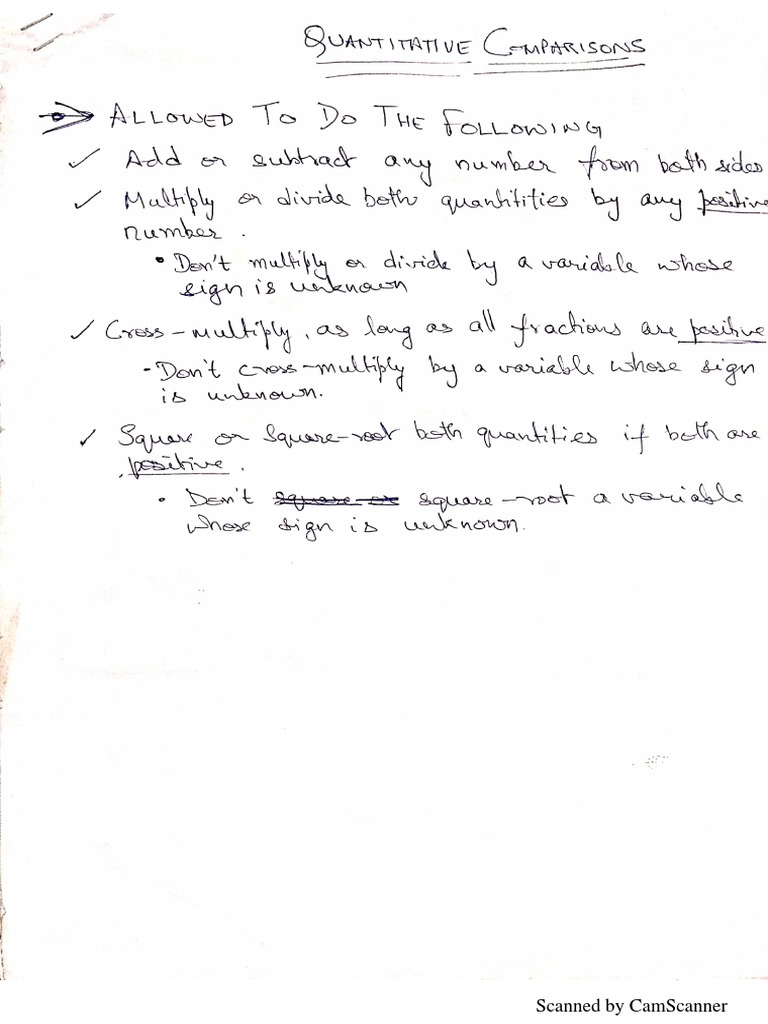 QUANTITATIVE COMPARISONS
ALLOWED TO DO THE FOLLOWING
✓ Add or subtract any number from both sides
✓ Multiply or divide both quantitities by any positive
number.
• Don't multiply or divide by a variable whose
sign is unknown
✓ Cross-multiply, as long as all fractions are positive
- Don't cross-multiply by a variable whose sign
is unknown.
✓ Square or square-root both quantities if both are
positive.
• Don't square or square-root a variable
whose sign is unknown.
Scanned by CamScanner